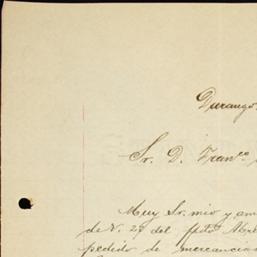 Durango
Sr. D. Fran.co
Muy Sr. mio y am
de V. 27 del
pedido de mercancia